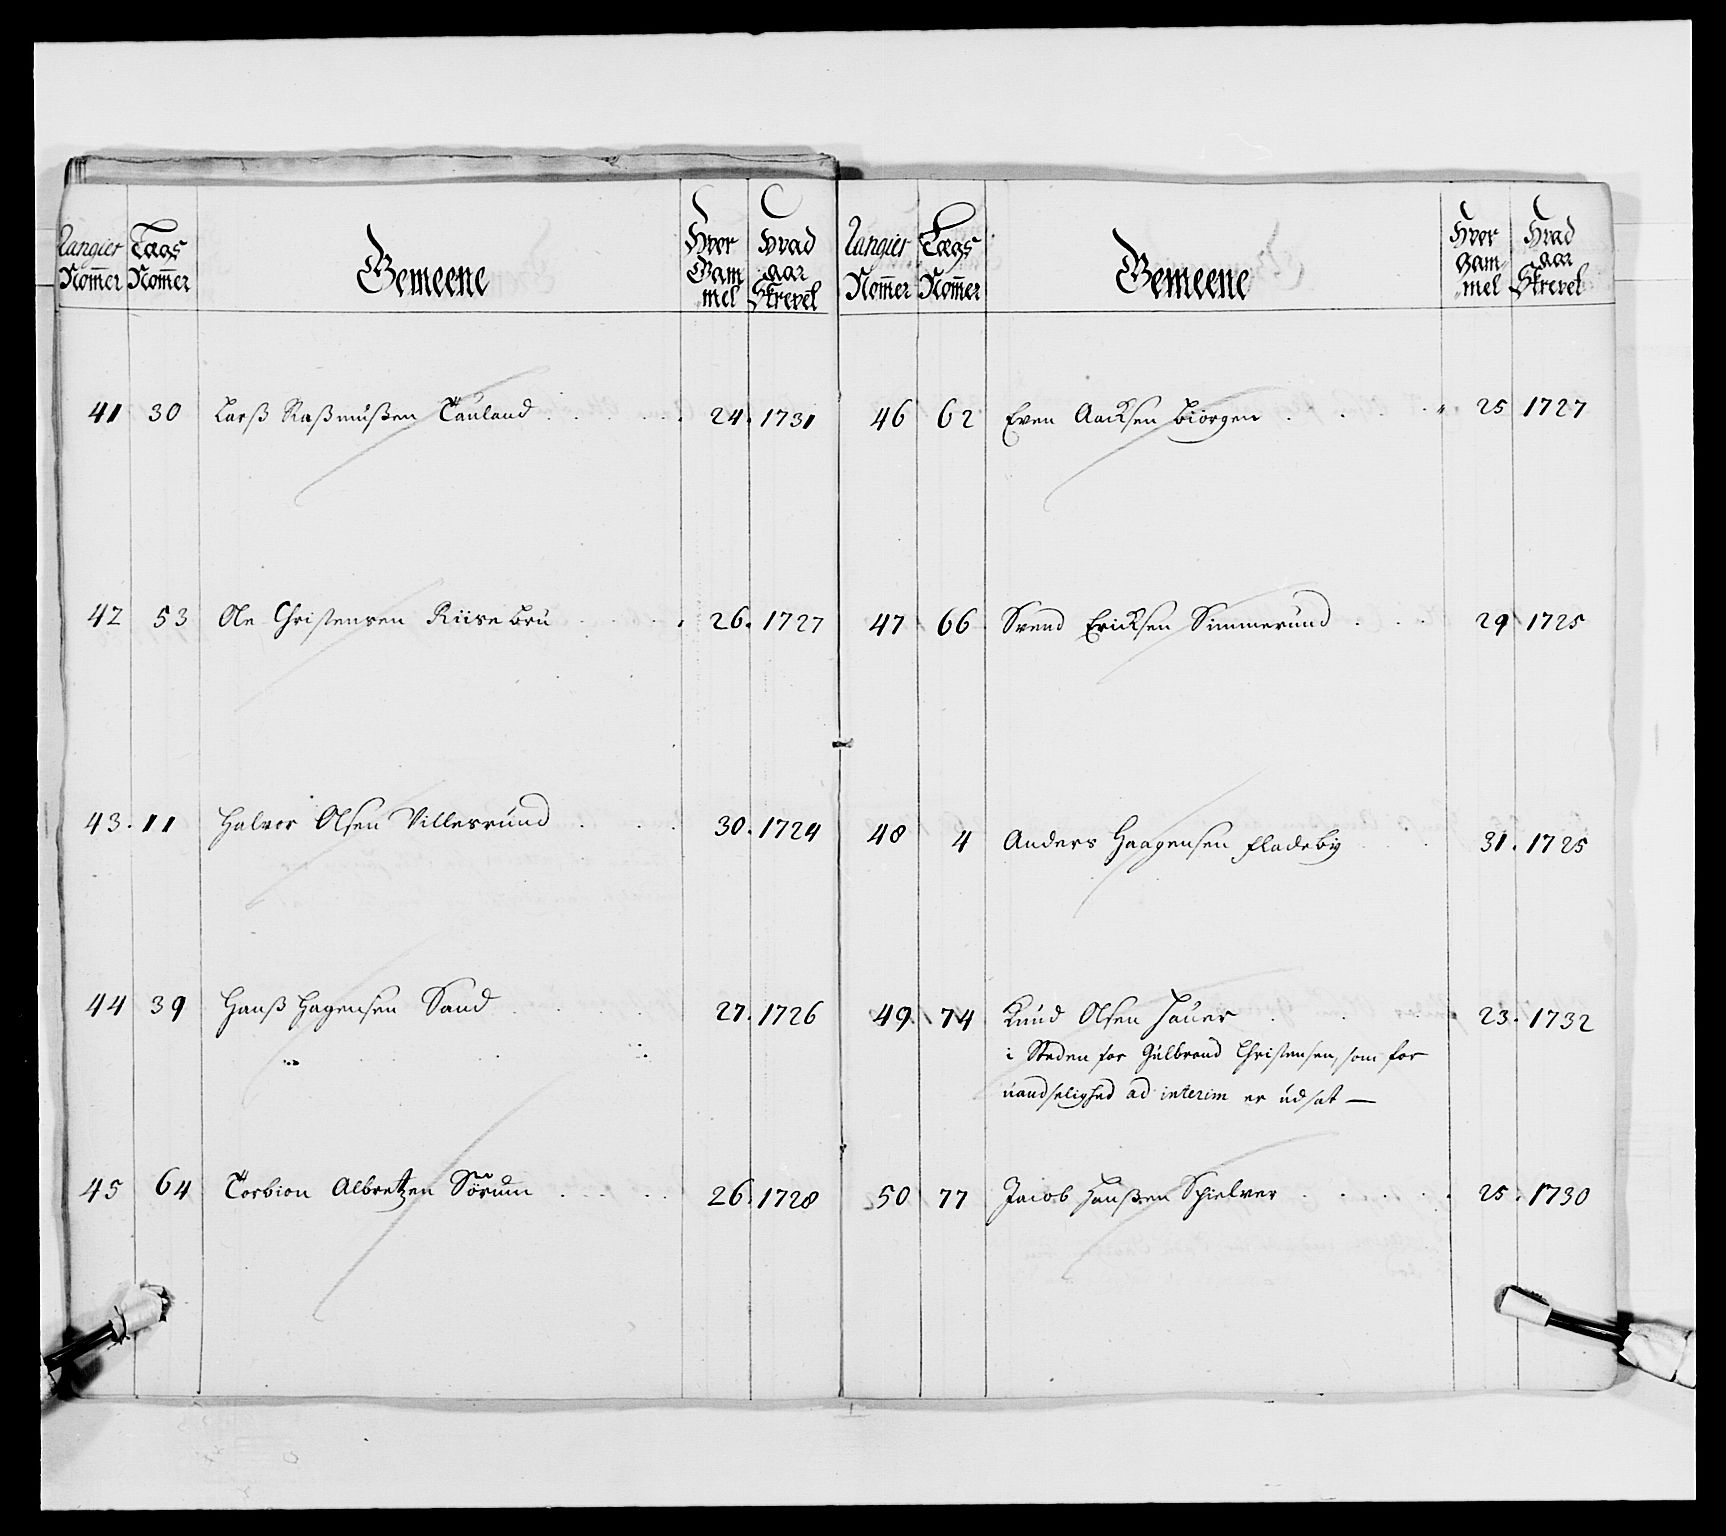 Rangier Nom̅er | Lægs Nom̅er | Gemeene | Hvor Gammel | Hvad aar Skrevet
41 30 Larß Raßmußen Tauland 24. 1731
42 53 Ole Christensen Riisebru 26. 1727
43. 11 Halvor Olsen Villesrund 30. 1724
44 39 Hanß Hagensen Sand 27. 1726
45 64 Torbion Albretzen Sörum 26. 1728
Rangier Nom̅er | Lægs Nom̅er | Gemeene | Hvor Gammel | Hvad aar Skrevet
46 62 Even Aacksen Biorgen 25 1727
47 66 Svend Ericksen Simmerund 29 1725
48 4 Anders Haagensen Fladeby 31. 1725
49 74 Knud Olsen Hauer 23. 1732
i Steden for Gulbrand Christensen, som for
uandselighed ad interim er udsat —
50 77 Jacob Hanßen Spielver 25. 1730